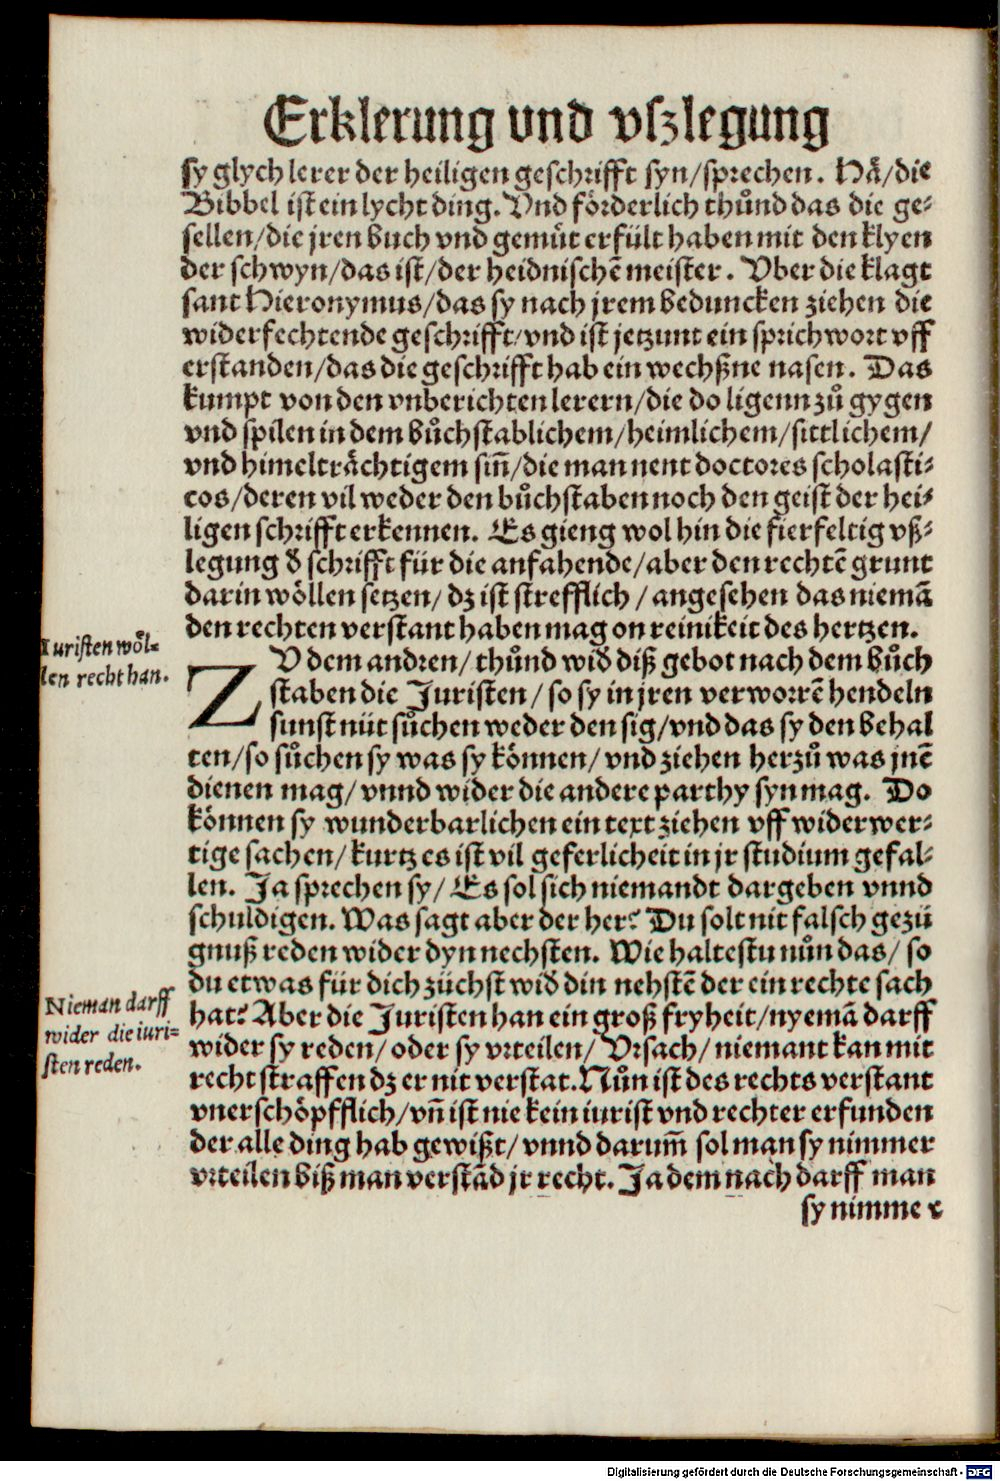 Erklerung vnd vſzlegung
ſy glych lerer der heiligen geſchrifft ſyn/ſprechen. Hä/die
Bibbel iſt ein lycht ding. Vnd förderlich thůnd das die ge⸗
ſellen/die jren buch vnd gemüt erfült haben mit den klyen
der ſchwyn/das iſt/der heidniſchē meiſter. Vber die klagt
ſant Hieronymus/das ſy nach jrem beduncken ziehen die
widerfechtende geſchrifft/vnd iſt jetzunt ein ſprichwort vff
erſtanden/das die geſchrifft hab ein wechßne naſen. Das
kumpt von den vnberichten lerern/die do ligenn zů gygen
vnd ſpilen in dem bůchſtablichem/heimlichem/ſittlichem/
vnd himelträchtigem ſiñ/die man nent doctores ſcholaſti⸗
cos/deren vil weder den bůchſtaben noch den geiſt der hei⸗
ligen ſchrifft erkennen. Es gieng wol hin die fierfeltig vß⸗
legung đ ſchrifft für die anfahende/aber den rechtē grunt
darin wöllen ſetzen/ dz iſt ſtrefflich / angeſehen das niemā
den rechten verſtant haben mag on reinikeit des hertzen.
Iuriſten wŏl⸗
len recht han.
ZV dem andren/ thůnd wiđ diß gebot nach dem bůch
ſtaben die Juriſten/ ſo ſy in jren verworrē hendeln
ſunſt nüt ſůchen weder den ſig/vnd das ſy den behal
ten/ſo ſůchen ſy was ſy können/ vnd ziehen herzů was jnē
dienen mag/ vnnd wider die andere parthy ſyn mag. Do
können ſy wunderbarlichen ein text ziehen vff widerwer⸗
tige ſachen/ kurtz es iſt vil geferlicheit in jr ſtudium gefal⸗
len. Ja ſprechen ſy/ Es ſol ſich niemandt dargeben vnnd
ſchuldigen. Was ſagt aber der her? Du ſolt nit falſch gezü
gnuß reden wider dyn nechſten. Wie halteſtu nůn das/ ſo
du etwas für dich züchſt wiđ din nehſtē der ein rechte ſach
hat? Aber die Juriſten han ein groß fryheit/nyemā darff
wider ſy reden/ oder ſy vrteilen/ Vrſach/ niemant kan mit
recht ſtraffen dz er nit verſtat. Nůn iſt des rechts verſtant
vnerſchöpfflich/vñ iſt nie kein iuriſt vnd rechter erfunden
der alle ding hab gewißt/ vnnd darum̄ ſol man ſy nimmer
vrteilen biß man verſtād jr recht. Ja dem nach darff man
Nieman darff
wider die iuri⸗
ſten reden.
ſy nimmer
Digitalisierung gefördert durch die Deutsche Forschungsgemeinschaft - DFG